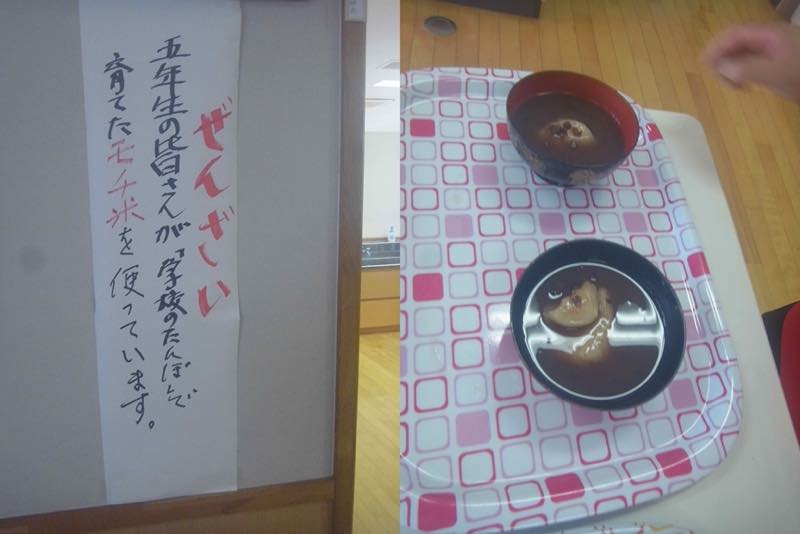 ぜんざい
五年生の皆さんが「学校のたんぼ」で
育てたモチ米を使っています。